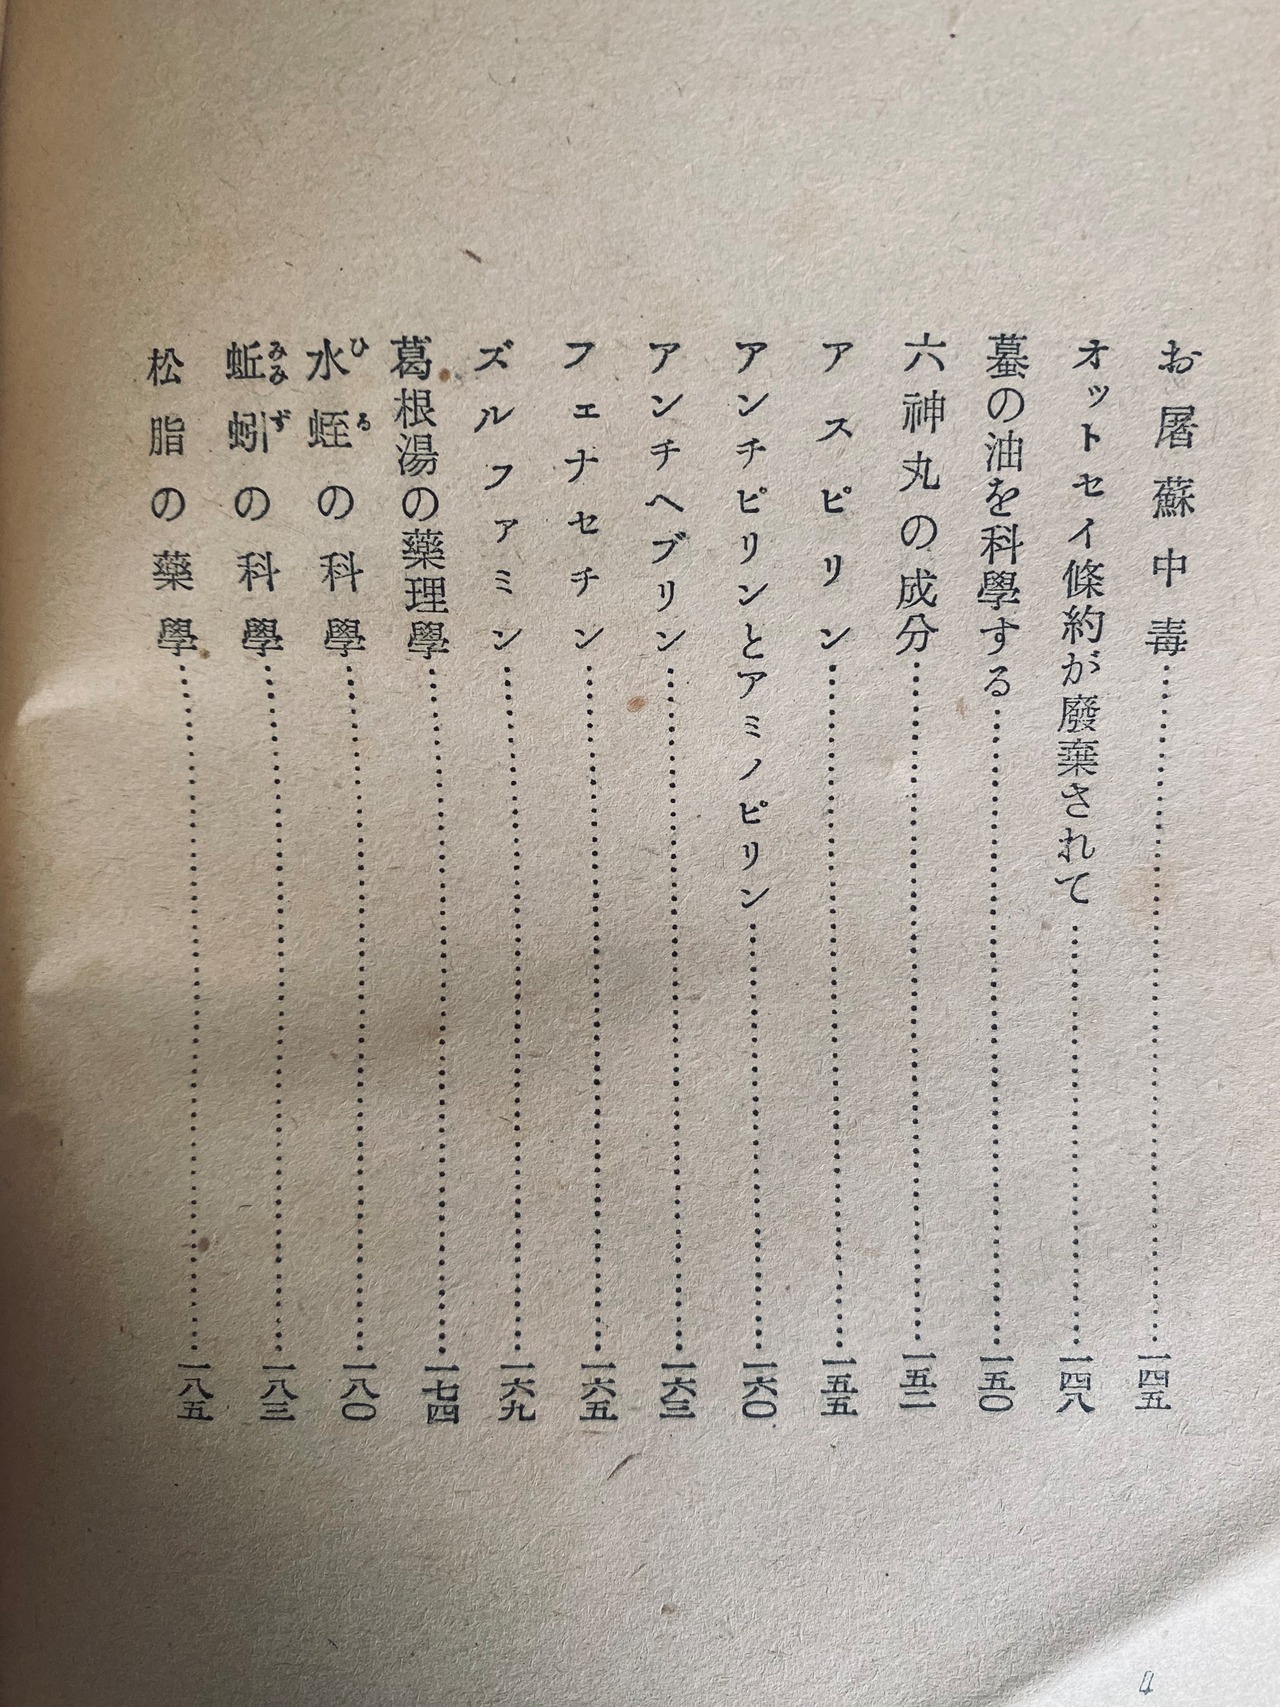 お屠蘇中毒……………………一四五
オットセイ條約が廢棄されて……………………一四八
蟇の油を科學する……………………一五〇
六神丸の成分……………………一五二
アスピリン……………………一五五
アンチピリンとアミノピリン……………………一六〇
アンチヘブリン……………………一六三
フェナセチン……………………一六五
ズルファミン……………………一六九
葛根湯の藥理學……………………一七四
水蛭の科學……………………一八〇
ひる
蚯蚓の科學……………………一八三
みみず
松脂の藥學……………………一八五
4